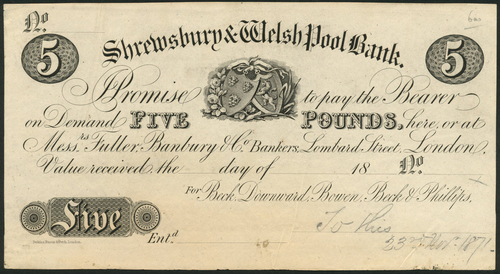 No.
5 Shrewsbury & Welsh Pool Bank. 5
I Promise to pay the Bearer
on Demand FIVE POUNDS, here, or at
Mess.rs Fuller, Banbury & Co. Bankers, Lombard Street, London,
Value received the day of 18 No.
For Beck, Downward, Bowen, Beck & Phillips,
Five
Ent.d
To this
23
1871